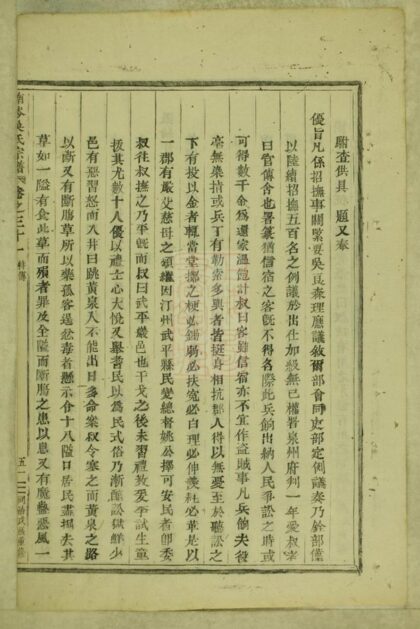 驗查供具題又奉
優旨凡係招撫事關緊要吳良奉理應議敘爾部會同吏部定例議奏乃銓部僅
以陸續招撫五百名之例議於出仕加級無已權署泉州府判一年愛叔宰
曰官傳舍也署篆猶信宿之客旣不得名際此兵餉出納人民爭訟之時或
可得數千金為還家溫飽計叔曰客雖信宿亦不宜作盜賊事凡兵餉夫役
毫無染指或兵丁有勒索多與者皆挺身相抗郡人得以無憂至於聽訟之
下有投以金者輒當堂擲之梗必鋤弱必扶寃必白理必伸羨耗必革是以
一郡有嚴父慈母之頌繼因汀州武平縣民變總督姚公擇可安民者卽委
叔往叔撫之乃平旣而叔曰武平巖邑也干戈之後未習禮教爰季試生童
拔其尤數十人優以禮士心大悅又舉耆民以為民式俗乃漸醕訟獄鮮少
邑有惡習怒而入井曰跳黃泉人不能出日多命案叔令塞之而黃泉之路
以斷又有斷膓草所以藥孤客逞忿毒者懸示令十八隘口居民盡搨去其
草如一隘有食此草而殞者罪及全隘而斷膓之患以息又有魔魯惡風一
南岑吳氏宗譜 卷之三十一 特傳 五